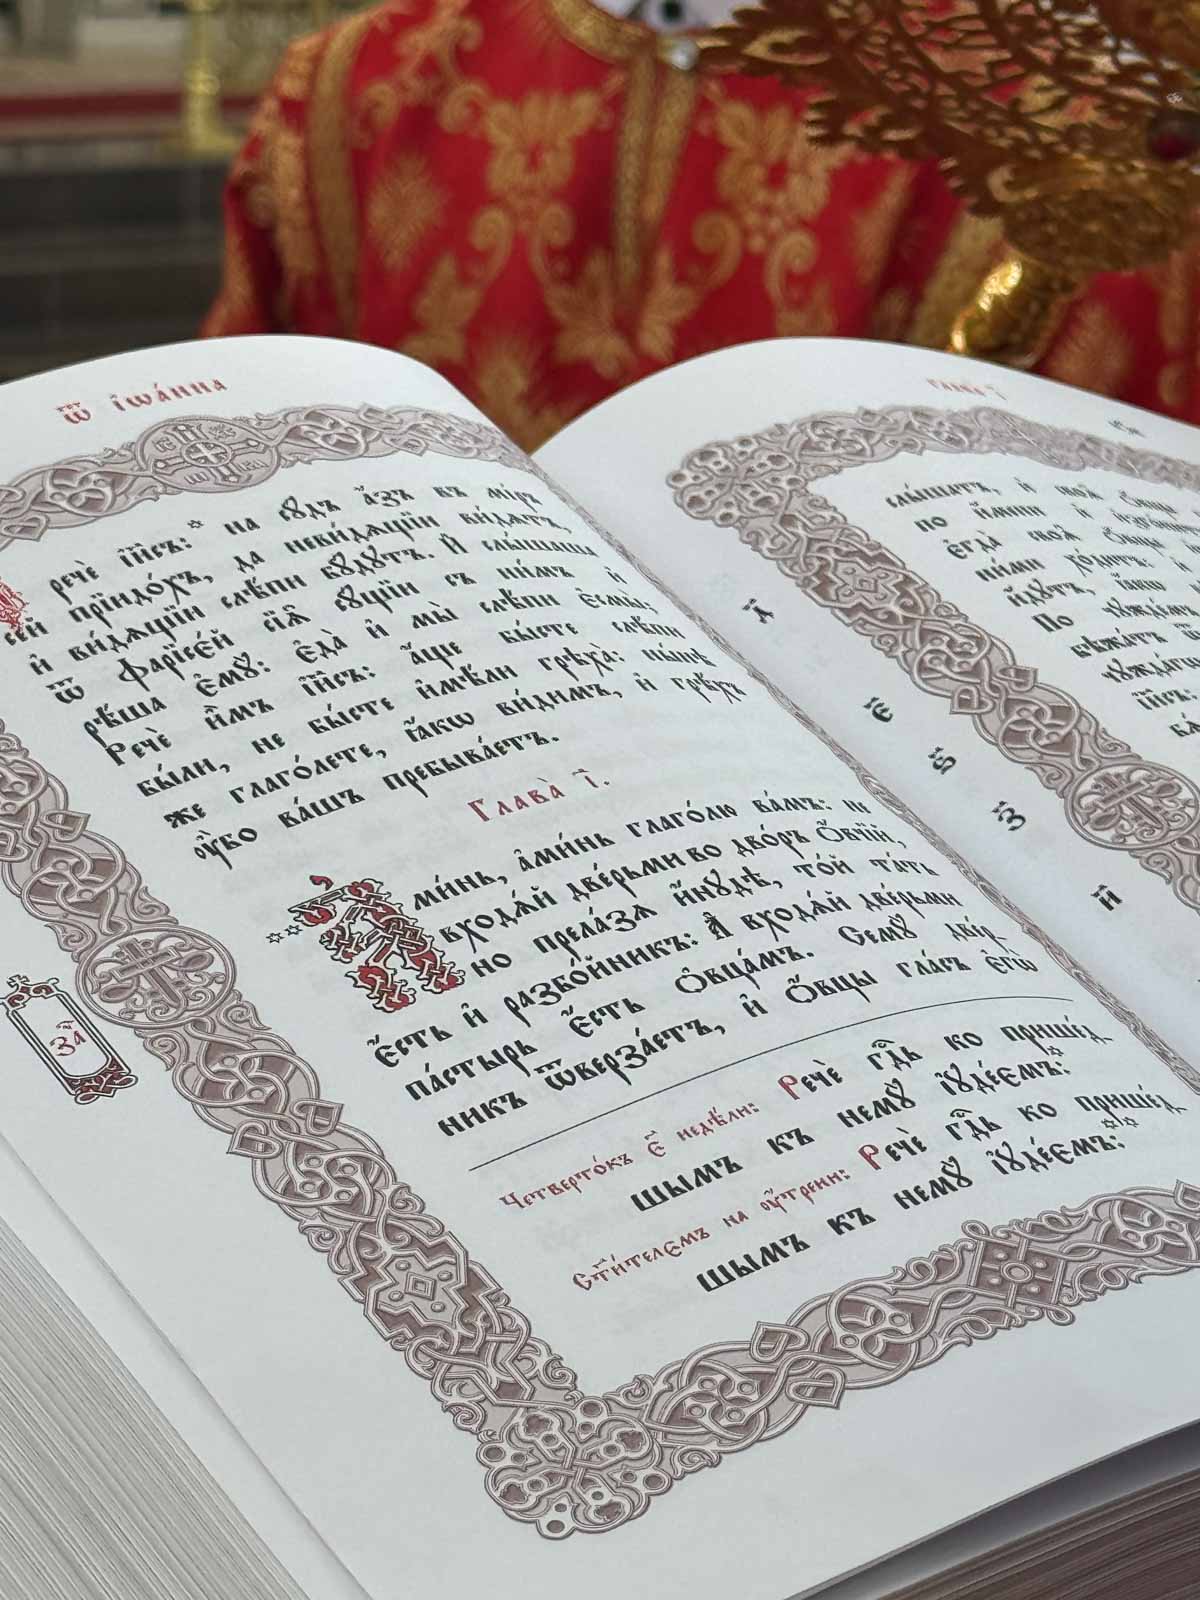 Ѿ і҆ѡа́нна
речѐ і҆и҃съ: * на сꙋ́дъ а҆́зъ въ мі́ръ
се́й прїидо́хъ, да неви́дѧщїи ви́дѧтъ,
и҆ ви́дѧщїи слѣ́пи бꙋ́дꙋтъ. И҆ слы́шаша
ѿ фарїсє́й сїѧ̑ сꙋ́щїи съ ни́мъ и҆
рѣ́ша є҆мꙋ̀: є҆да̀ и҆ мы̀ слѣ́пи є҆смы̀;
Речѐ и҆̀мъ і҆и҃съ: а҆́ще бы́сте слѣ́пи
бы́ли, не бы́сте и҆мѣ́ли грѣха̀: ны́нѣ
же глаго́лете, ꙗ҆́кѡ ви́димъ, и҆ грѣ́хъ
ᲂу҆̀бо ва́шъ пребыва́етъ.
Глава̀ і҃.
А҆ми́нь, а҆ми́нь глаго́лю ва́мъ: не
входѧ́й две́рьми во дво́ръ ѻ҆́вчїй,
но прела́зѧ и҆нꙋ́дѣ, то́й та́ть
є҆́сть и҆ разбо́йникъ: А҆ входѧ́й две́рьми
па́стырь є҆́сть ѻ҆вца́мъ. Семꙋ̀ две́р-
никъ ѿверза́етъ, и҆ ѻ҆́вцы гла́съ є҆гѡ̀
Четверто́къ є҃ недѣ́ли: Речѐ гдⷭ҇ь ко прише́д-
шымъ къ немꙋ̀ і҆ꙋде́ємъ:
Ст҃и́телємъ на ᲂу҆́трени: Речѐ гдⷭ҇ь ко прише́д-
шымъ къ немꙋ̀ і҆ꙋде́ємъ:
Глава̀ і҃
д҃
є҃
ѕ҃
з҃
и҃
слы́шатъ, и҆ своѧ̑ ѻ҆́вцы
по и҆́мени и҆
є҆гда̀ своѧ̑ ѻ҆́вцы
ни́ми хо́дитъ: и҆
и҆́дꙋтъ, ꙗ҆́кѡ
По
бѣжа́тъ
і҆и҃съ: